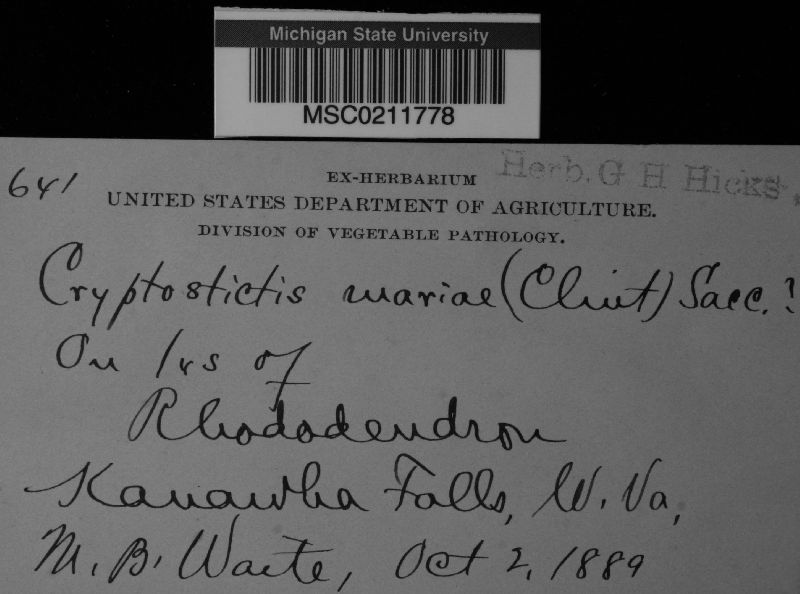 Michigan State University
MSC0211778
Herb. G H Hicks.
641
EX-HERBARIUM
UNITED STATES DEPARTMENT OF AGRICULTURE.
DIVISION OF VEGETABLE PATHOLOGY.
Cryptostictis mariae (Clint) Sacc.?
On lvs of
Rhododendron
Kanawha Falls, W. Va,
M. B. Waite, Oct 2, 1889